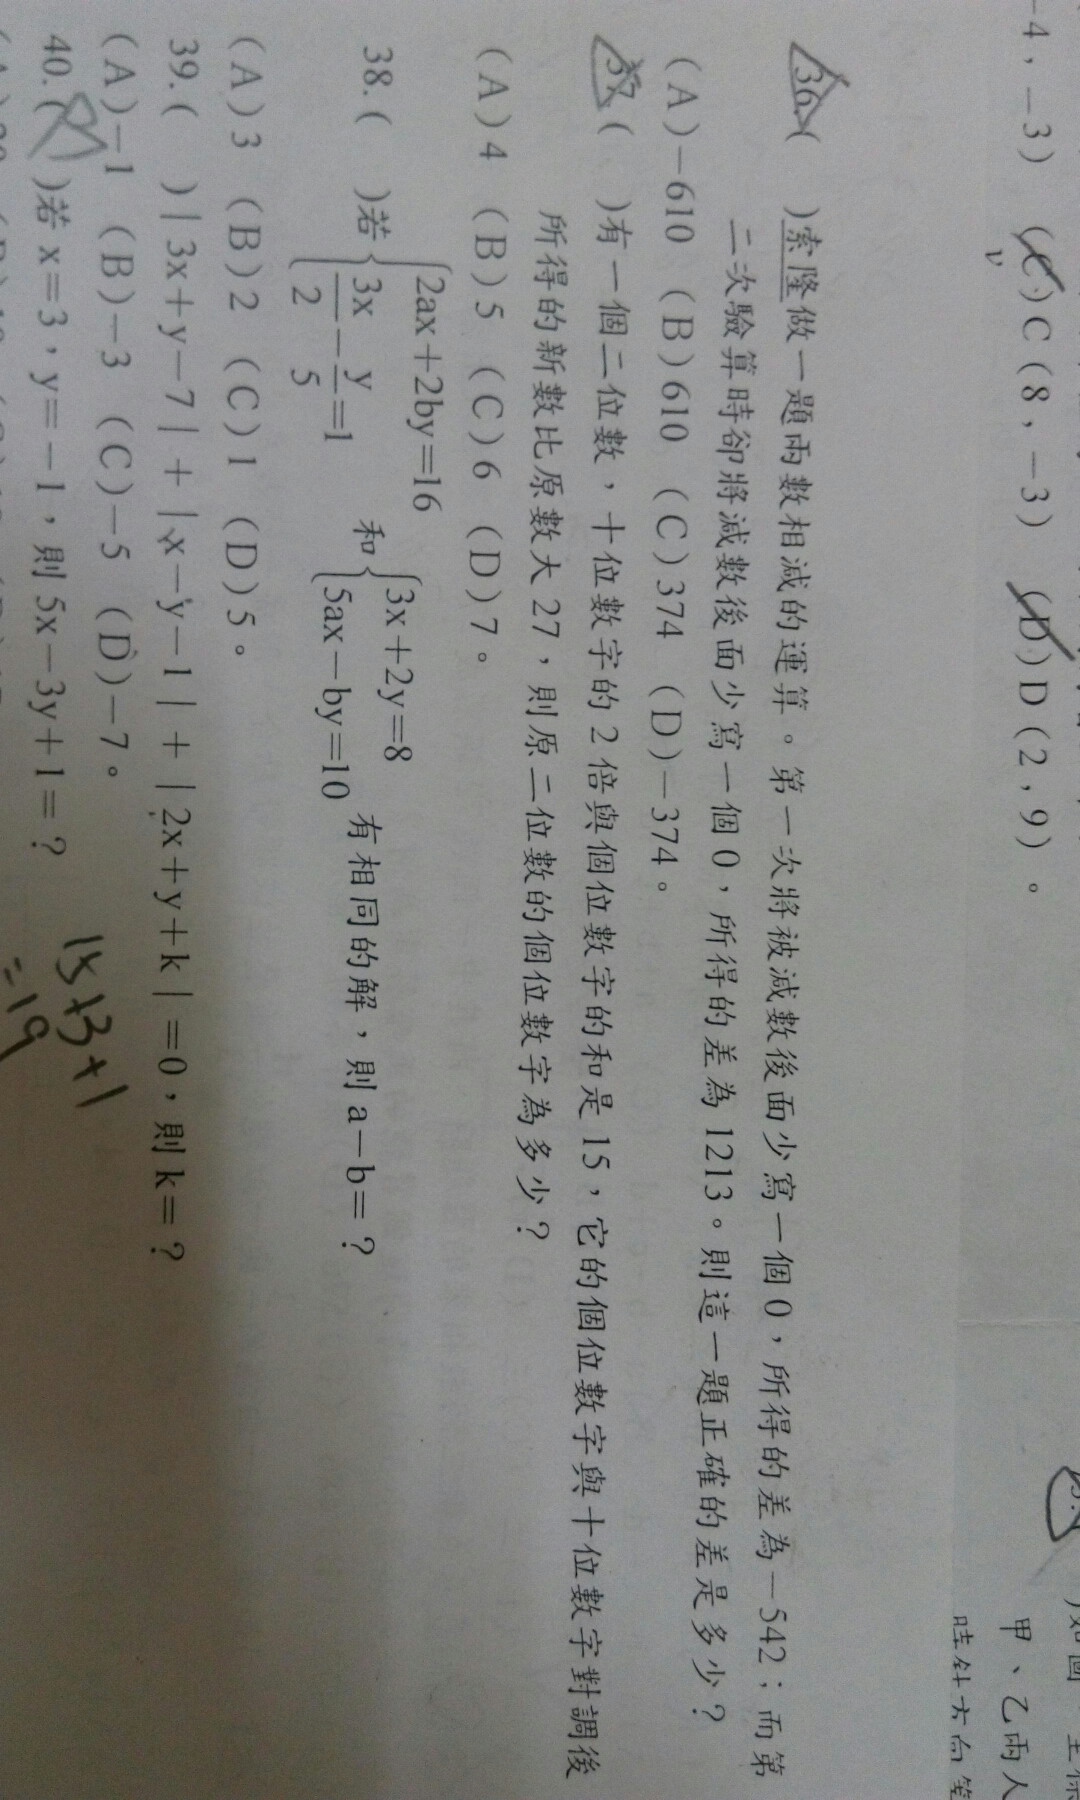 -4，-3） （C）C（8，-3） （D）D（2，9）。
甲、乙兩人
36.（ ）索隆做一題兩數相減的運算。第一次將被減數後面少寫一個0，所得的差為-542；而第
二次驗算時卻將減數後面少寫一個0，所得的差為1213。則這一題正確的差是多少？
（A）-610 （B）610 （C）374 （D）-374。
37（ ）有一個二位數，十位數字的2倍與個位數字的和是15，它的個位數字與十位數字對調後
所得的新數比原數大27，則原二位數的個位數字為多少？
（A）4 （B）5 （C）6 （D）7。
38.（ ）若{2ax+2by=16, 3x/2-y/5=1 和{3x+2y=8, 5ax-by=10 有相同的解，則a-b=？
（A）3 （B）2 （C）1 （D）5。
39.（ ）|3x+y-7|+|x-y-1|+|2x+y+k|=0，則k=？
（A）-1 （B）-3 （C）-5 （D）-7。
40.（ ）若x=3，y=-1，則5x-3y+1=？
15+3+1
=19